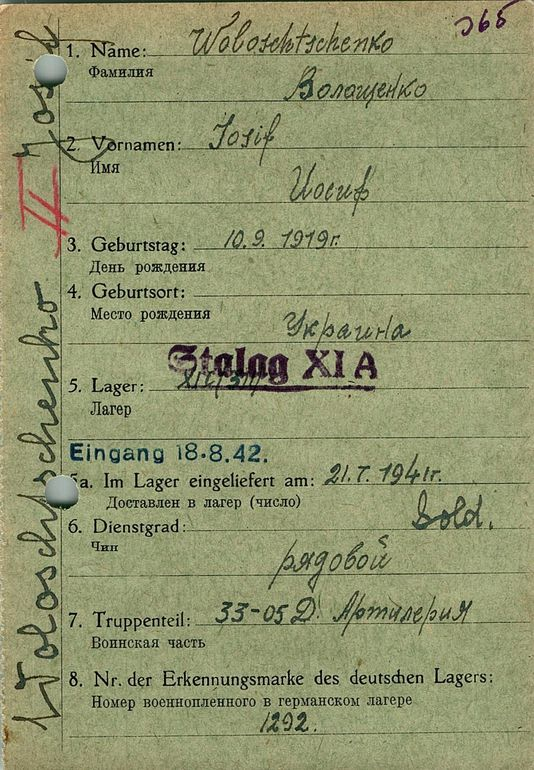 365
1. Name: Woloschtschenko
Фамилия
Волащенко
2. Vornamen: Iosif
Имя
Иосиф
II
3. Geburtstag: 10.9. 1919г.
День рождения
4. Geburtsort:
Место рождения
Украина
Stalag XI A
5. Lager:
Лагер
Eingang 18.8.42.
5a. Im Lager eingeliefert am: 21.7. 1941г.
Доставлен в лагер (число)
6. Dienstgrad: Sold.
Чин
рядовой
7. Truppenteil: 33-05 D. Артилерия
Воинская часть
8. Nr. der Erkennungsmarke des deutschen Lagers:
Номер военнопленного в германском лагере
1292.
Woloschtschenko Josif